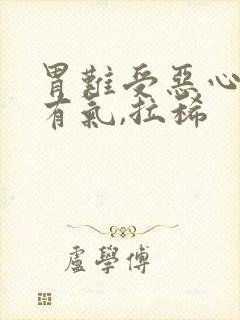 胃難受惡心
有氣,拉稀
盧學傅